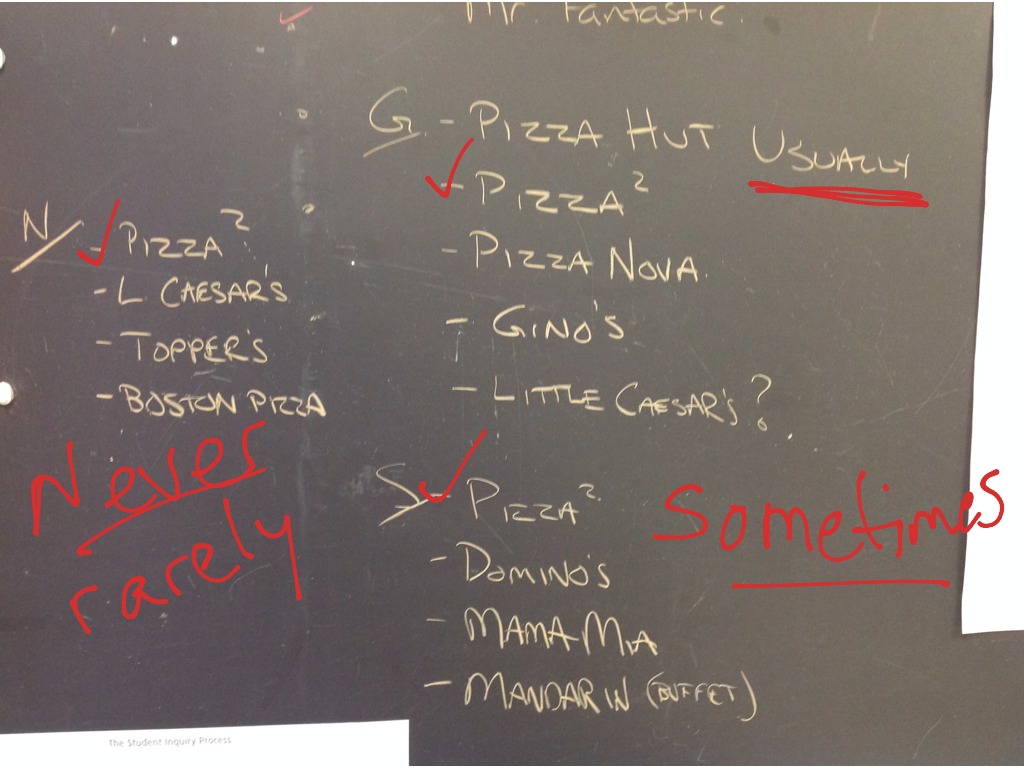 Mr. Fantastic.
G - PIZZA HUT USUALLY
- PIZZA²
- PIZZA NOVA
- GINO'S
- LITTLE CAESAR'S?
N - PIZZA²
- L CAESAR'S
- TOPPER'S
- BOSTON PIZZA
Never
rarely
S - PIZZA²
sometimes
- DOMINO'S
- MAMA MIA
- MANDARIN (BUFFET)
The Student Inquiry Process